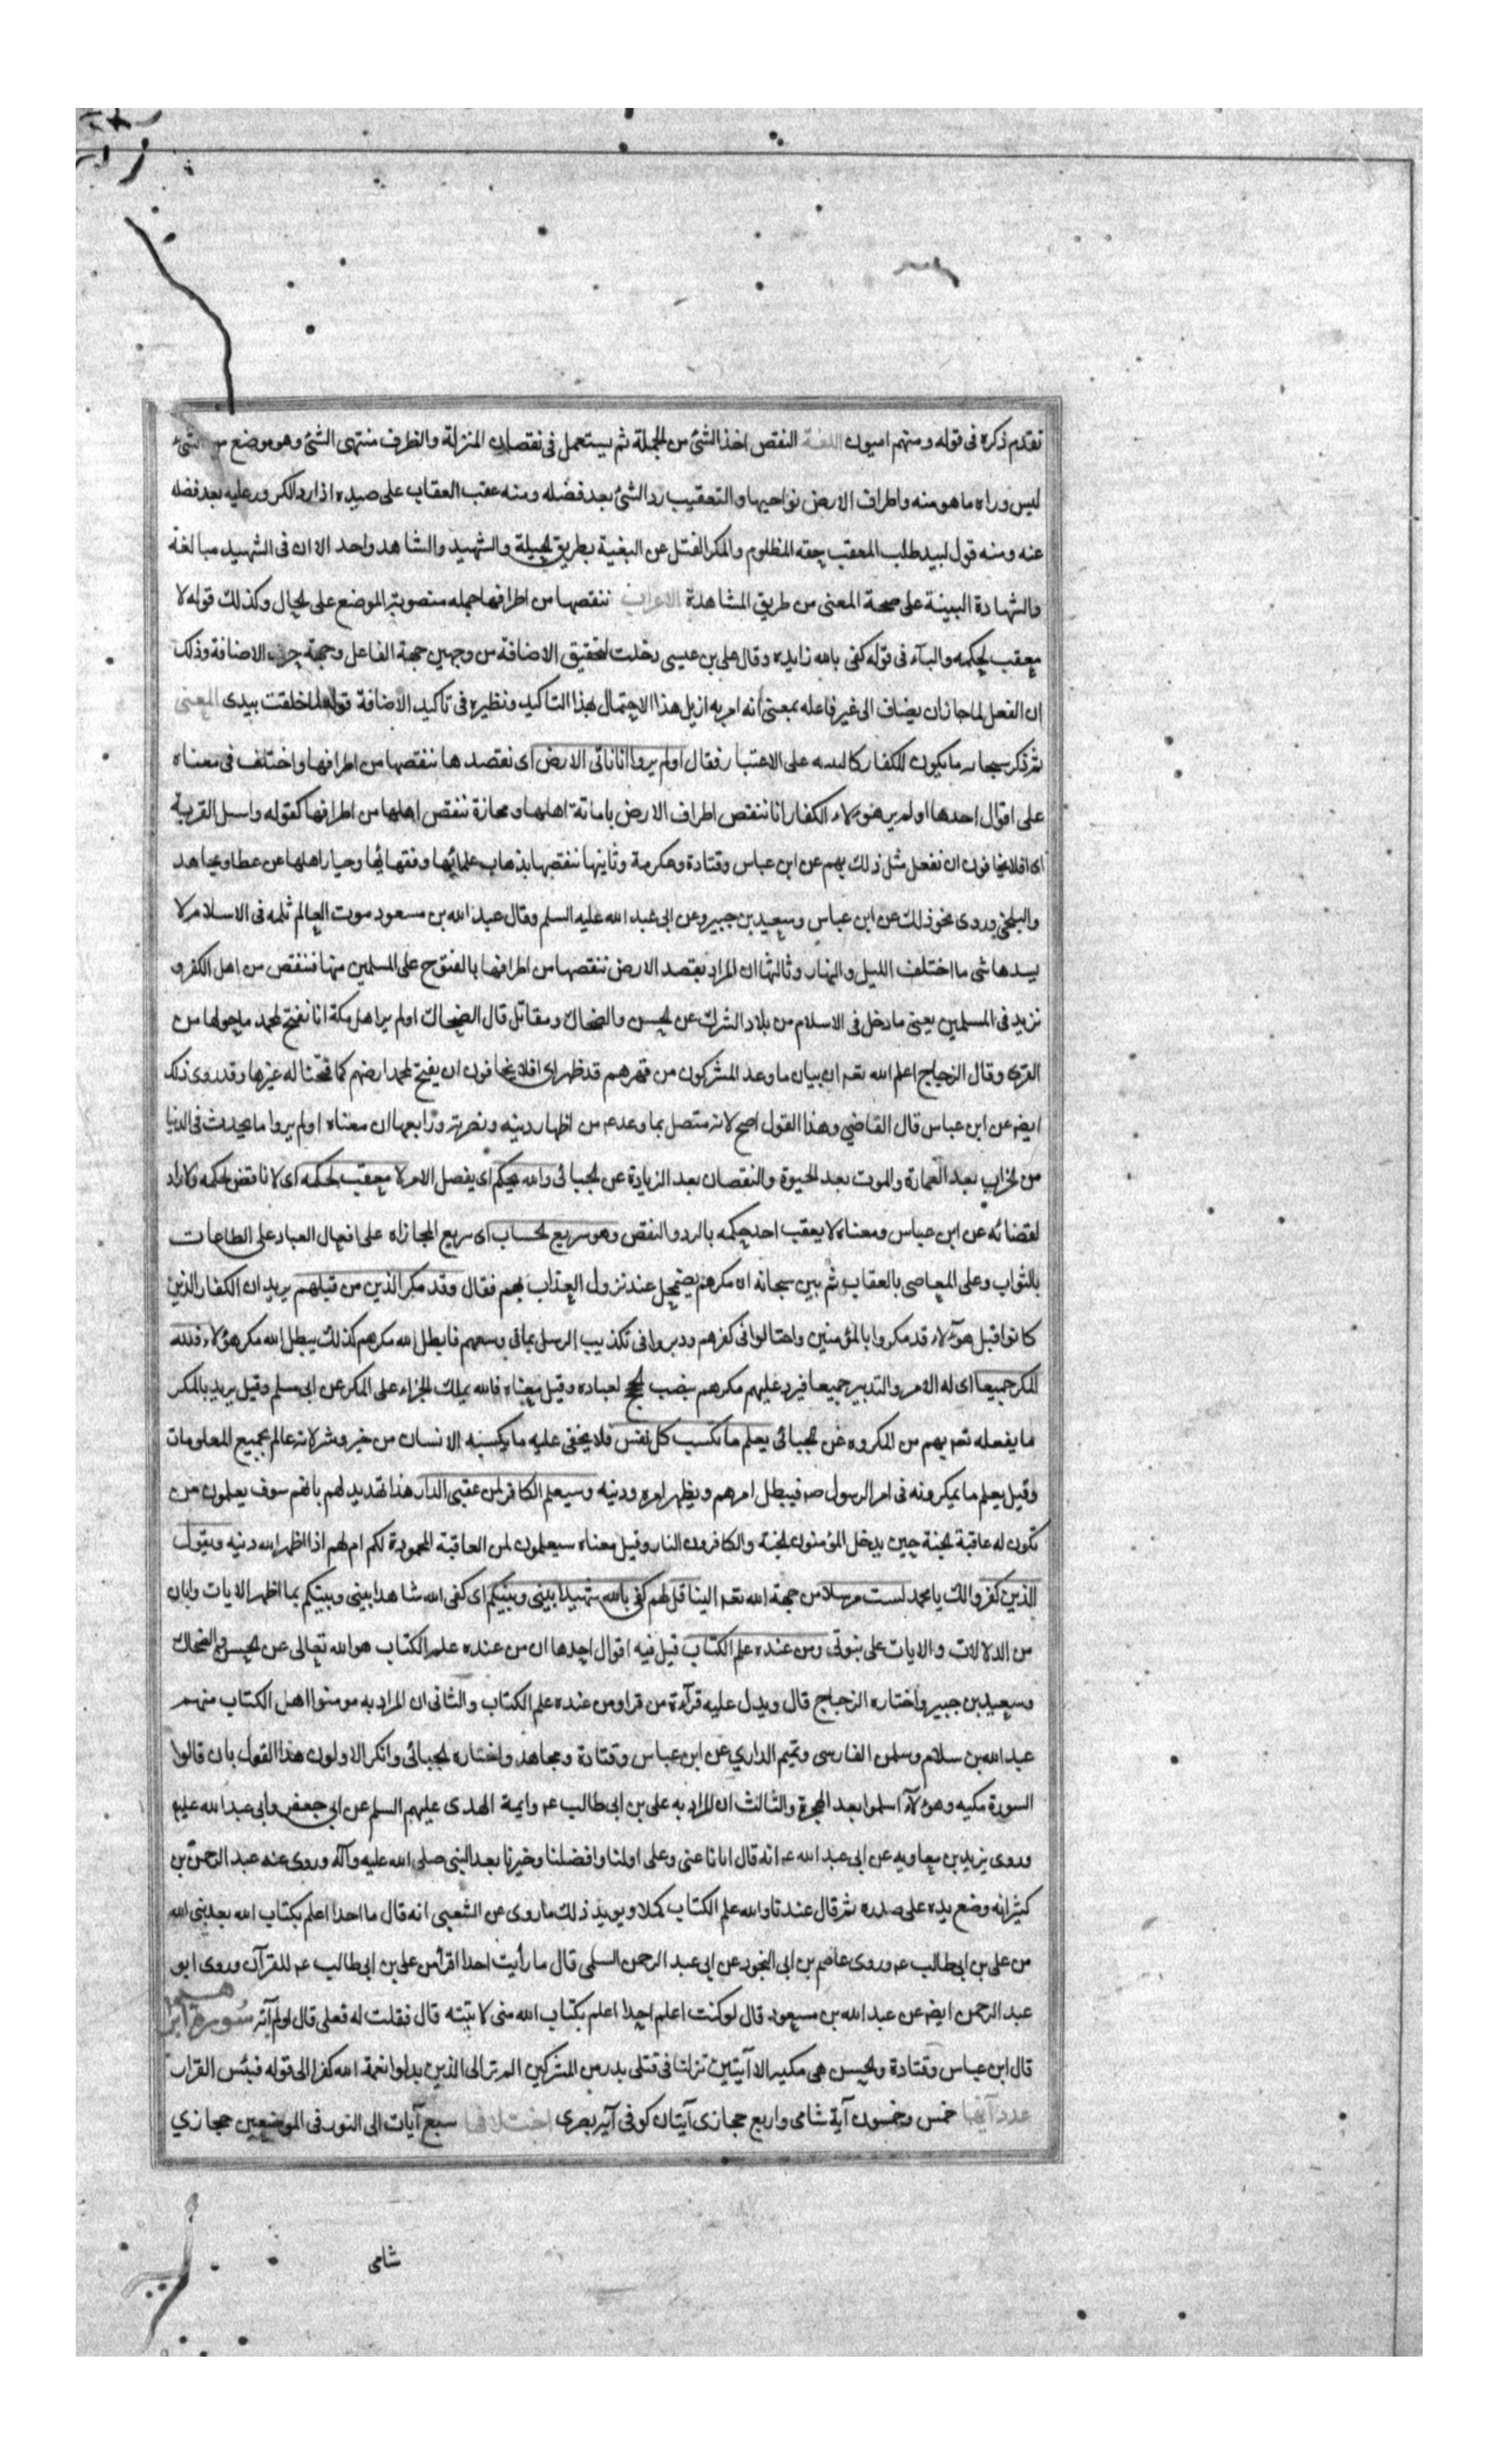 تقدم ذكره فى قوله ومنهم اميون اللغة النقص اخذ الشئ من الجملة ثم يستعمل فى نقصان المنزلة والطرف منتهى الشئ وهو موضع من الشئ
ليس وراه ما هو منه واطراف الارض نواحيها والتعقيب رد الشئ بعد فصله ومنه عقب العقاب على صيده اذا رد الكرور عليه بعد فصله
عنه ومنه قول لبيد طلب المعقب حقه المظلوم والمكر الفتل عن البغية بطريق الحيلة والشهيد والشاهد واحد الا ان فى الشهيد مبالغة
والشهادة البينة على صحة المعنى من طريق المشاهدة الاعراب ننقصها من اطرافها جمله منصوبة الموضع على الحال وكذلك قوله لا
معقب لحكمه والبآء فى قوله كفى بالله زايده وقال على بن عيسى دخلت لتحقيق الاضافة من وجهين جهة الفاعل وجهة حرف الاضافة وذلك
ان الفعل لما جاز ان يضاف الى غير فاعله بمعنى انه امر به ازيل هذا الاحتمال بهذا التاكيد ونظيره فى تاكيد الاضافة قوله لما خلقت بيدى المعنى
ثم ذكر سبحانه ما يكون للكفار كالبينه على الاعتبار فقال اولم يروا انا ناتى الارض اى نقصدها ننقصها من اطرافها واختلف فى معناه
على اقوال احدها اولم ير هؤلاء الكفار انا ننقص اطراف الارض باماتة اهلها ومجازة ننقص اهلها من اطرافها كقوله واسئل القرية
اى افلا يخافون ان نفعل مثل ذلك بهم عن ابن عباس وقتادة وعكرمة وثانيها ننقصها بذهاب علمائها وفقهائها وخيار اهلها عن عطا ومجاهد
والبلخى وروى نحو ذلك عن ابن عباس وسعيد بن جبير وعن ابى عبد الله عليه السلم وقال عبد الله بن مسعود موت العالم ثلمه فى الاسلام لا
يسدها شى ما اختلف الليل والنهار وثالثها ان المراد بقصد الارض ننقصها من اطرافها بالفتوح على المسلمين منها فننقص من اهل الكفر و
نزيد فى المسلمين يعنى ما دخل فى الاسلام من بلاد الشرك عن الحسن والضحاك ومقاتل قال الضحاك اولم ير اهل مكة انا نفتح لمحمد ما حولها من
القرى وقال الزجاج اعلم الله تعہ ان بيان ما وعد المشركون من قهرهم قد ظهر اى افلا يخافون ان يفتح لمحمد ارضهم كما فتحنا له غيرها وقد روى ذلك
ايضہ عن ابن عباس قال القاضي وهذا القول اصح لانه متصل بما وعده من اظهار دينه ونصرته ورابعها ان معناه اولم يروا ما يحدث فى الدنيا
من الخراب بعد العمارة والموت بعد الحيوة والنقصان بعد الزيادة عن الجبائى والله يحكم اى يفصل الامر لا معقب لحكمه اى لا ناقض لحكمه ولا راد
لقضائه عن ابن عباس ومعناه لا يعقب احد حكمه بالرد والنقض وهو سريع الحساب اى سريع المجازاه على افعال العباد على الطاعات
بالثواب وعلى المعاصى بالعقاب ثم بين سبحانه ان مكرهم يضمحل عند نزول العذاب بهم فقال وقد مكر الذين من قبلهم يريد ان الكفار الذين
كانوا قبل هؤلاء قد مكروا بالمؤمنين واحتالوا فى كفرهم ودبروا فى تكذيب الرسل بما فى وسعهم فابطل الله مكرهم كذلك يبطل الله مكر هؤلاء فلله
المكر جميعا اى له الامر والتدبير جميعا فيرد عليهم مكرهم بنصب الحجج لعباده وقيل معناه فالله يملك الجزاء على المكر عن ابى مسلم وقيل يريد بالمكر
ما يفعله تعہ بهم من المكروه عن الجبائى يعلم ما تكسب كل نفس فلا يخفى عليه ما يكسبه الانسان من خير وشر لانه عالم بجميع المعلومات
وقيل يعلم ما يمكرونه فى امر الرسول صہ فيبطل امرهم ويظهر امره ودينه وسيعلم الكافر لمن عقبى الدار هذا تهديد لهم بانهم سوف يعلمون من
تكون له عاقبة الجنة حين يدخل المؤمنون الجنة والكافرون النار وقيل معناه سيعلمون لمن العاقبة المحمودة لكم ام لهم اذا اظهر الله دينه ويقول
الذين كفروا لك يا محمد لست مرسلا من جهة الله تعہ الينا قل لهم كفى بالله شهيدا بينى وبينكم اى كفى الله شاهدا بينى وبينكم بما اظهر الايات وابان
من الدلالات والايات على نبوتى ومن عنده علم الكتاب قيل فيه اقوال احدها ان من عنده علم الكتاب هو الله تعالى عن الحسن والضحاك
وسعيد بن جبير واختاره الزجاج قال ويدل عليه قرآءة من قرا ومن عنده علم الكتاب والثانى ان المراد به مومنوا اهل الكتاب منهم
عبد الله بن سلام وسلمن الفارسى وتميم الداري عن ابن عباس وقتادة ومجاهد واختاره الجبائى وانكر الاولون هذا القول بان قالوا
السورة مكيه وهؤلآء اسلموا بعد الهجرة والثالث ان المراد به على بن ابى طالب عہ وايمة الهدى عليهم السلم عن ابى جعفر وابى عبد الله عليهم
وروى يزيد بن معاويه عن ابى عبد الله عہ انه قال ايانا عنى وعلى اولنا وافضلنا وخيرنا بعد النبى صلى الله عليه وآله وروى عنه عبد الرحمن بن
كثير انه وضع يده على صدره ثم قال عندنا والله علم الكتاب كملا ويويد ذلك ما روى عن الشعبى انه قال ما احدا اعلم بكتاب الله بعد نبى الله
من على بن ابى طالب عہ وروى عاصم بن ابى النجود عن ابى عبد الرحمن السلمى قال ما رأيت احدا اقرأ من على بن ابى طالب عہ للقرآن وروى ابو
عبد الرحمن ايضہ عن عبد الله بن مسعود قال لو كنت اعلم احدا اعلم بكتاب الله منى لاتيته قال فقلت له فعلى قال اولم آته سورة ابراهيم
قال ابن عباس وقتادة والحسن هى مكيه الا آيتين نزلتا فى قتلى بدر من المشركين الم تر الى الذين بدلوا نعمة الله كفرا الى قوله فبئس القرار
عدد آيها خمس وخمسون آية شامى واربع حجازى آيتان كوفى آيه بصرى اختلافها سبع آيات الى النور فى الموضعين حجازي
شامى